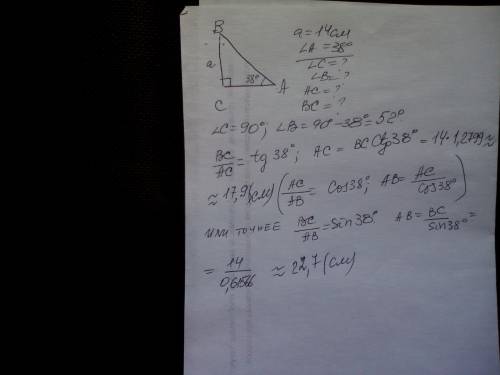 B
a
38°
A
C
a = 14 см
∠A = 38°
∠C = ?
∠B = ?
AC = ?
BC = ?
∠C = 90°; ∠B = 90° - 38° = 52°.
BC/AC = tg 38°; AC = BC Ctg 38° = 14 · 1,2799 ≈
≈ 17,9 (см) (AC/AB = Cos 38°; AB = AC/Cos 38°)
или точнее BC/AB = Sin 38°. AB = BC/Sin 38° =
= 14/0,61566 ≈ 22,7 (см)